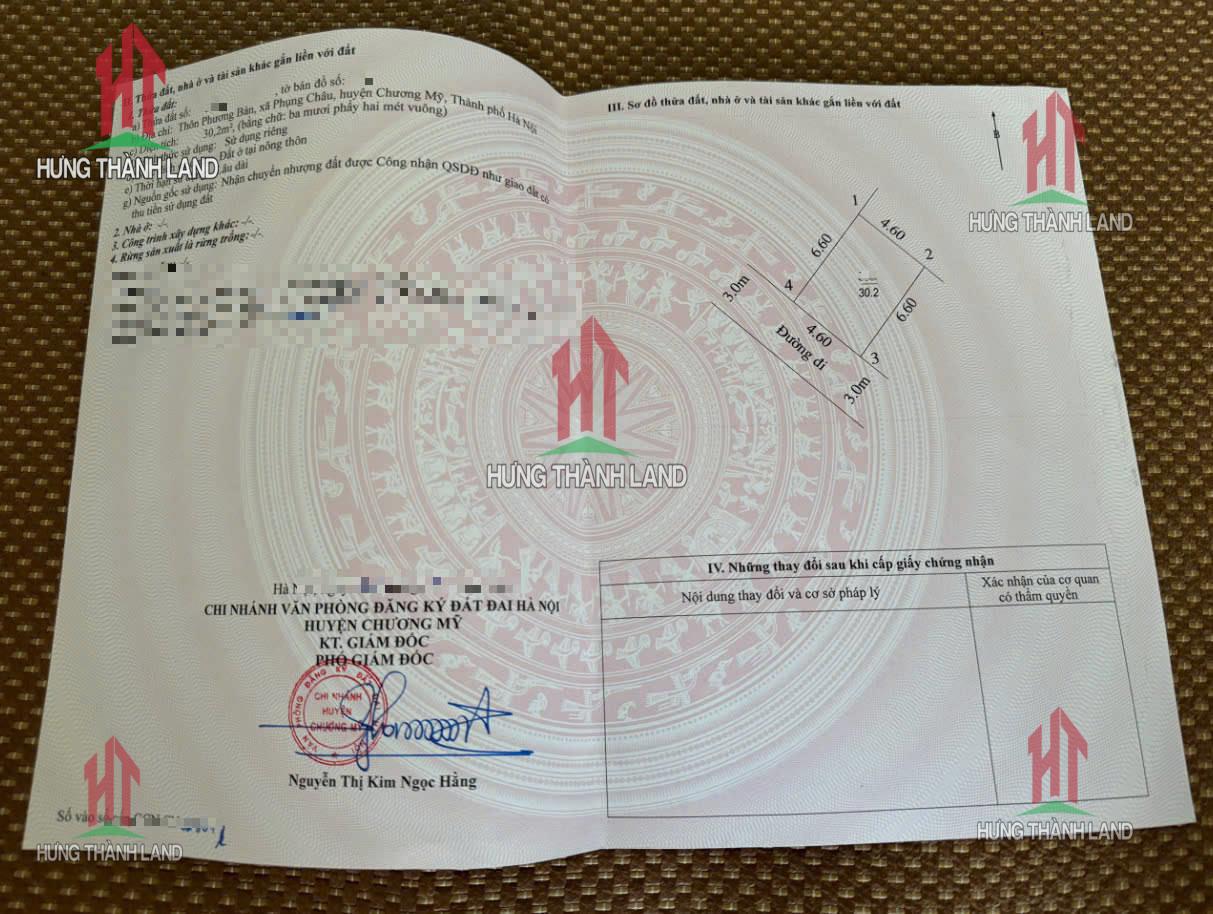 II. Thửa đất, nhà ở và tài sản khác gắn liền với đất
1. Thửa đất:
a) Thửa đất số: , tờ bản đồ số:
b) Địa chỉ: Thôn Phương Bản, xã Phụng Châu, huyện Chương Mỹ, Thành phố Hà Nội
c) Diện tích: 30,2m², (bằng chữ: ba mươi phẩy hai mét vuông)
sử dụng: Sử dụng riêng
Đất ở tại nông thôn
e) Thời hạn sử dụng: Lâu dài
g) Nguồn gốc sử dụng: Nhận chuyển nhượng đất được Công nhận QSDĐ như giao đất có
thu tiền sử dụng đất
2. Nhà ở: -/-.
3. Công trình xây dựng khác: -/-.
4. Rừng sản xuất là rừng trồng: -/-.
-/-.
Hà
CHI NHÁNH VĂN PHÒNG ĐĂNG KÝ ĐẤT ĐAI HÀ NỘI
HUYỆN CHƯƠNG MỸ
KT. GIÁM ĐỐC
PHÓ GIÁM ĐỐC
VĂN PHÒNG ĐĂNG KÝ ĐẤT
CHI NHÁNH
HUYỆN
CHƯƠNG MỸ
Nguyễn Thị Kim Ngọc Hằng
Số vào sổ
III. Sơ đồ thửa đất, nhà ở và tài sản khác gắn liền với đất
B
1
4.60
2
6.60
4
30.2
6.60
3.0m
4.60
3
Đường đi
3.0m
IV. Những thay đổi sau khi cấp giấy chứng nhận
Nội dung thay đổi và cơ sở pháp lý
Xác nhận của cơ quan
có thẩm quyền
HƯNG THÀNH LAND
HƯNG THÀNH LAND
HƯNG THÀNH LAND
HƯNG THÀNH LAND
HƯNG THÀNH LAND